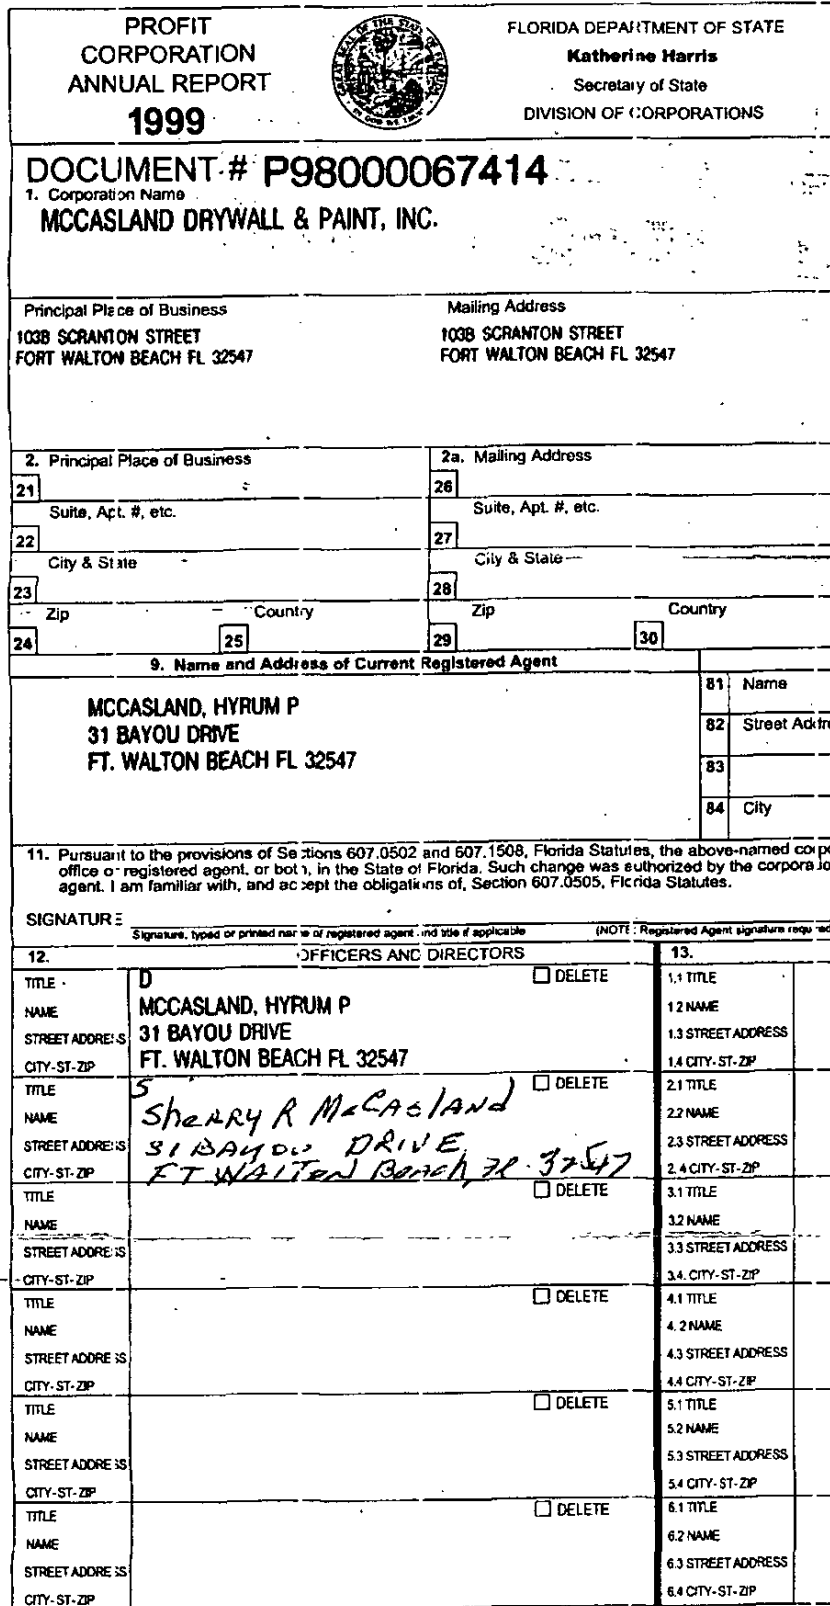 PROFIT
CORPORATION
ANNUAL REPORT
1999
FLORIDA DEPARTMENT OF STATE
Katherine Harris
Secretary of State
DIVISION OF CORPORATIONS
DOCUMENT # P98000067414
1. Corporation Name
MCCASLAND DRYWALL & PAINT, INC.
Principal Place of Business
103B SCRANTON STREET
FORT WALTON BEACH FL 32547
Mailing Address
103B SCRANTON STREET
FORT WALTON BEACH FL 32547
2. Principal Place of Business
21
Suite, Apt. #, etc.
22
City & State
23
Zip Country
24 25
2a. Mailing Address
26
Suite, Apt. #, etc.
27
City & State
28
Zip Country
29 30
9. Name and Address of Current Registered Agent
MCCASLAND, HYRUM P
31 BAYOU DRIVE
FT. WALTON BEACH FL 32547
81 Name
82 Street Addr
83
84 City
11. Pursuant to the provisions of Sections 607.0502 and 607.1508, Florida Statutes, the above-named corpo
office or registered agent, or both, in the State of Florida. Such change was authorized by the corporatio
agent. I am familiar with, and accept the obligations of, Section 607.0505, Florida Statutes.
SIGNATURE
Signature, typed or printed name of registered agent and title if applicable (NOTE: Registered Agent signature required
12. OFFICERS AND DIRECTORS 13.
TITLE D DELETE
NAME MCCASLAND, HYRUM P
STREET ADDRESS 31 BAYOU DRIVE
CITY-ST-ZIP FT. WALTON BEACH FL 32547
TITLE S DELETE
NAME Sherry R McCasland
STREET ADDRESS 31 BAYOU DRIVE
CITY-ST-ZIP FT WALTON Beach, Fl. 32547
TITLE DELETE
NAME
STREET ADDRESS
CITY-ST-ZIP
TITLE DELETE
NAME
STREET ADDRESS
CITY-ST-ZIP
TITLE DELETE
NAME
STREET ADDRESS
CITY-ST-ZIP
TITLE DELETE
NAME
STREET ADDRESS
CITY-ST-ZIP
1.1 TITLE
1.2 NAME
1.3 STREET ADDRESS
1.4 CITY-ST-ZIP
2.1 TITLE
2.2 NAME
2.3 STREET ADDRESS
2.4 CITY-ST-ZIP
3.1 TITLE
3.2 NAME
3.3 STREET ADDRESS
3.4. CITY-ST-ZIP
4.1 TITLE
4.2 NAME
4.3 STREET ADDRESS
4.4 CITY-ST-ZIP
5.1 TITLE
5.2 NAME
5.3 STREET ADDRESS
5.4 CITY-ST-ZIP
6.1 TITLE
6.2 NAME
6.3 STREET ADDRESS
6.4 CITY-ST-ZIP